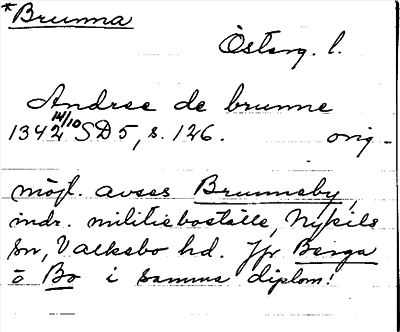 *Brunna
Österg. l.
Andree de brunne
1342 14/10 SD 5, s. 126. orig.
möjl. avses Brunneby,
indr. militieboställe, Nykils
sn, Valkebo hd. Jfr Berga
o Bo i samma diplom!